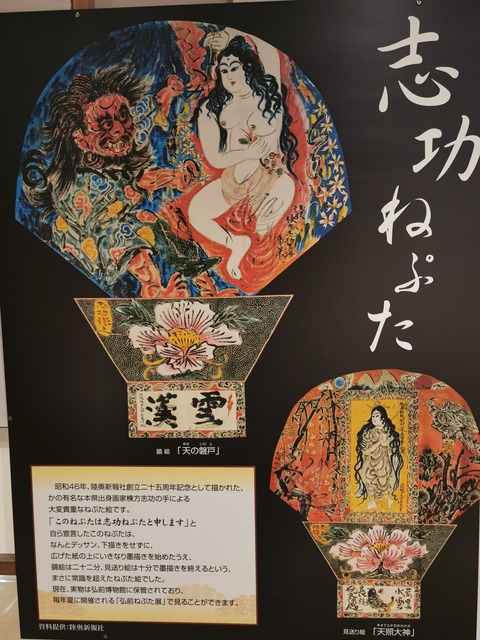 志功ねぷた
志功作
雲漢
鏡絵 「天の磐戸」
あま いわ と
昭和46年、陸奥新報社創立二十五周年記念として描かれた、
かの有名な本県出身画家棟方志功の手による
大変貴重なねぷた絵です。
「このねぷたは志功ねぷたと申します」と
自ら宣言したこのねぷたは、
なんとデッサン、下描きをせずに、
広げた紙の上にいきなり墨描きを始めたうえ、
鏡絵は二十二分、見送り絵は十分で墨描きを終えるという、
まさに常識を超えたねぷた絵でした。
現在、実物は弘前博物館に保管されており、
毎年夏に開催される「弘前ねぷた展」で見ることができます。
資料提供:陸奥新報社
あまてらすおおみかみ
見送り絵 「天照大神」